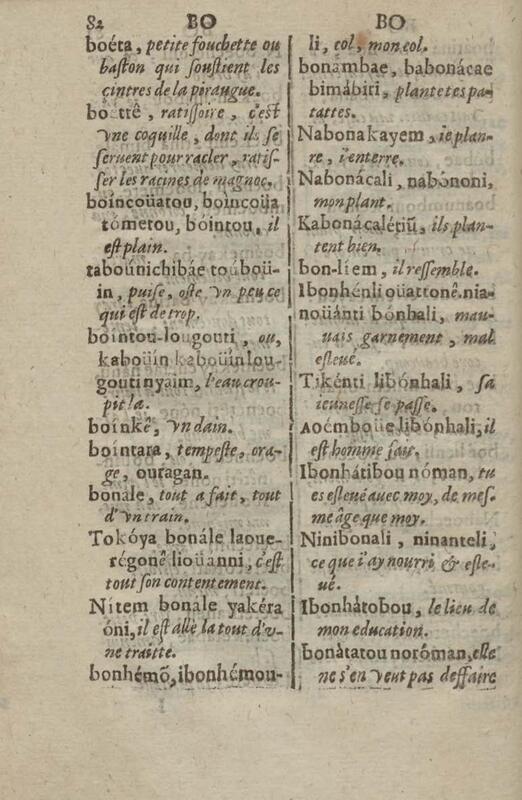 82 BO
boéta, petite fouchette ou
baston qui soustient les
çintres de la pirangue.
boéttê, ratissoire, c'est
vne coquille, dont ils se
seruent pour racler, ratis-
ser les racines de magnoc.
boíncoüatou, boincoüa
tómetou, bóintou, il
est plain.
taboúnichibáe toúboü-
in, puise, oste vn peu ce
qui est de trop.
bointou-lougouti, ou,
kaboüin kaboüinlou-
goutinyaim, l'eau crou-
pit la.
boínkê, vn dain.
boíntara, tempeste, ora-
ge, ouragan.
bonále, tout a fait, tout
d'vn train.
Tokóya bonále laoue-
régonê lioüanni, c'est
tout son contentement.
Nítem bonále yakéra
óni, il est allé la tout d'v-
ne traitte.
bonhémõ, ibonhémou-
BO
li, col, mon col.
bonámbae, babonácae
bimábiri, plante tes pa-
tattes.
Nabonakayem, ie plan-
te, i'enterre.
Nabonácali, nabónoni,
mon plant.
Kabonácalétiũ, ils plan-
tent bien.
bon-líem, il ressemble.
Ibonhénli oüattonê.nia-
noüánti bónhali, mau-
uais garnement, mal
esleué.
Tikénti libónhali, sa
ieunesse se passe.
Aoémboüe libónhali, il
est homme fait.
Ibonhátibou nóman, tu
es esleué auec moy, de mes-
me âge que moy.
Ninibonali, ninanteli,
ce que i'ay nourri & esle-
ué.
Ibonhátobou, le lieu de
mon education.
bonàtatou notóman, elle
ne s'en veut pas deffaire